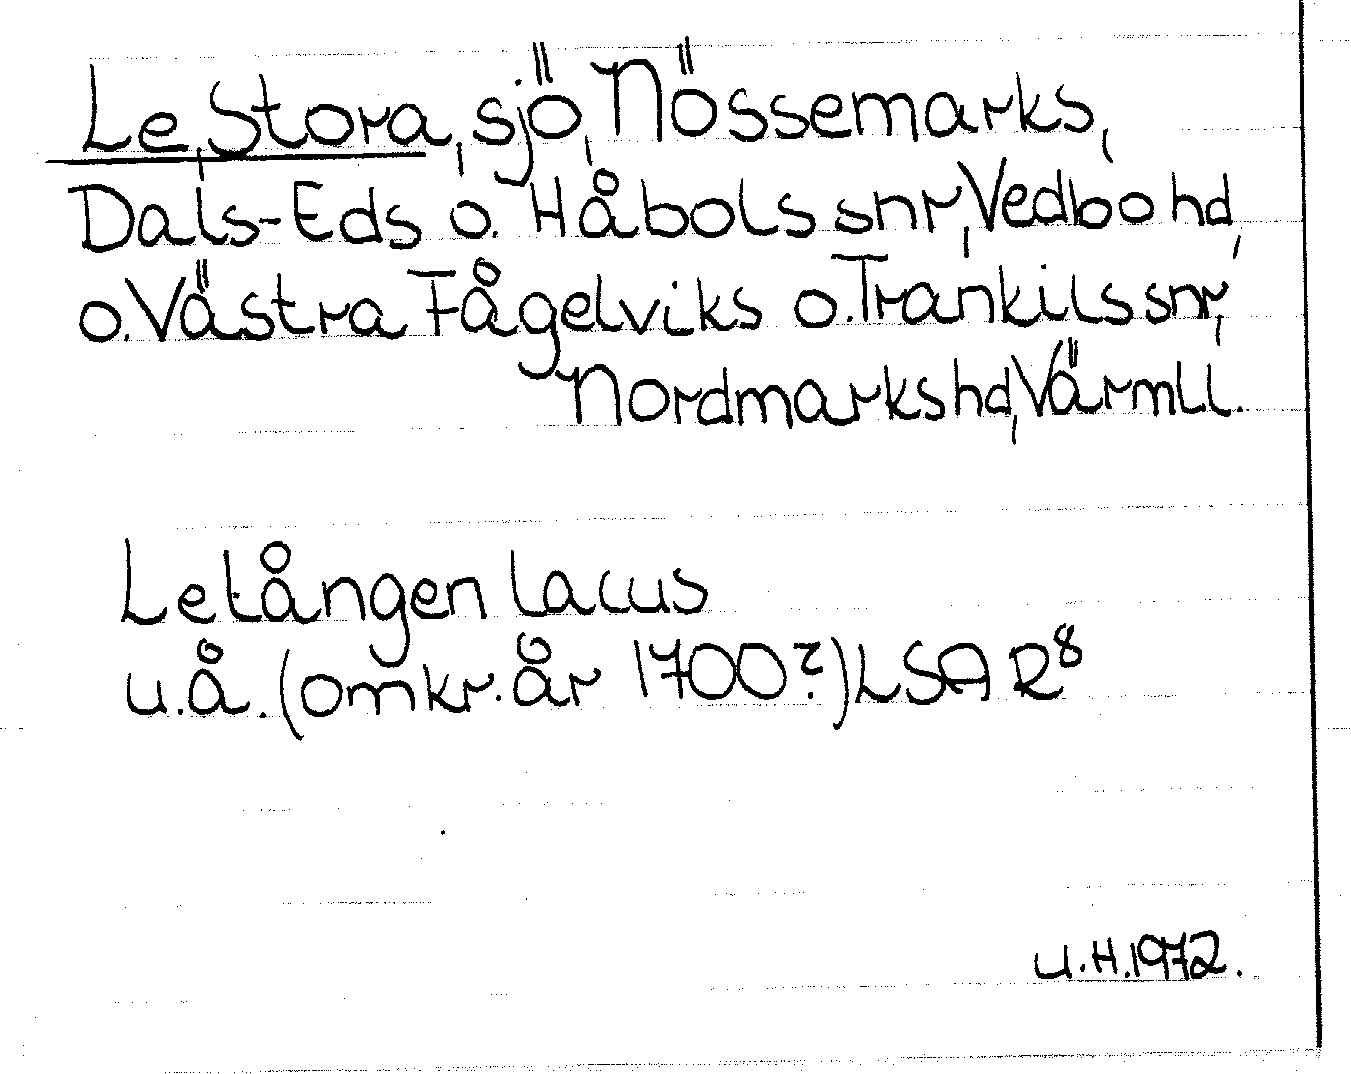 Le, Stora, sjö, Nössemarks,
Dals-Eds o. Håbols snr, Vedbo hd,
o. Västra Fågelviks o. Trankils snr,
Nordmarks hd, Värmll.
Letången lacus
u.å. (omkr. år 1700?) LSA R8
U.H. 1972.